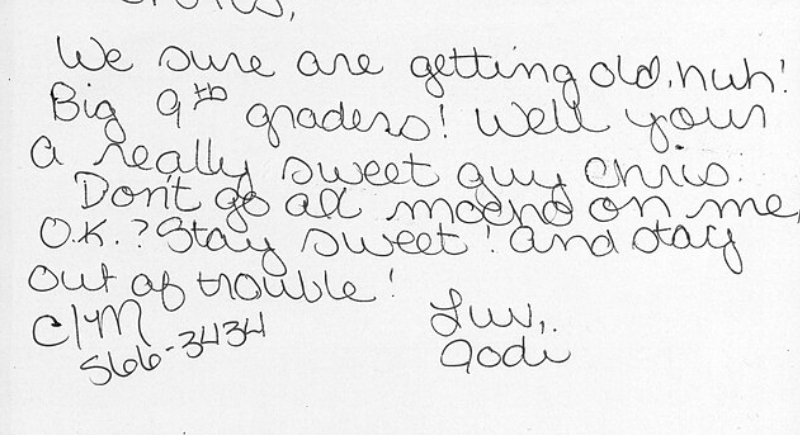 We sure are getting old, huh!
Big 9th graders! Well your
a really sweet guy Chris.
Don't go all on me,
O.K.? Stay sweet! and stay
out of trouble!
Luv,
Jodi
566-3434